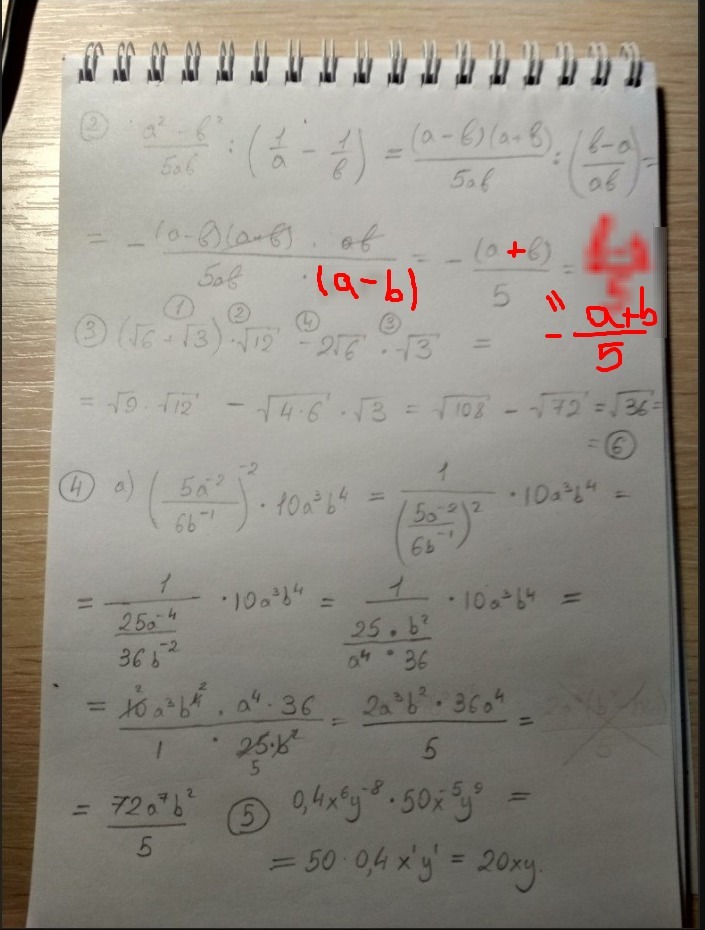 ② a² - b² / 5ab : (1/a - 1/b) = (a-b)(a+b) / 5ab : (b-a / ab) =
= - (a-b)(a+b) · ab / 5ab · (a-b) = - (a+b) / 5 =
" - a+b / 5
① ② ④ ③
③ (√6 + √3) · √12 - 2√6 · √3 =
= √9 · √12 - √4·6 · √3 = √108 - √72 = √36 =
= ⑥
④ а) (5a⁻² / 6b⁻¹)⁻² · 10a³b⁴ = 1 / (5a⁻² / 6b⁻¹)² · 10a³b⁴ =
= 1 / (25a⁻⁴ / 36b⁻²) · 10a³b⁴ = 1 / (25 · b² / a⁴ · 36) · 10a³b⁴ =
= 10 2 a³b⁴ ² · a⁴ · 36 / 1 · 25·b² 5 = 2a³b² · 36a⁴ / 5 =
= 72a⁷b² / 5 ⑤ 0,4x⁶y⁻⁸ · 50x⁻⁵y⁹ =
= 50 · 0,4 x¹y¹ = 20xy.